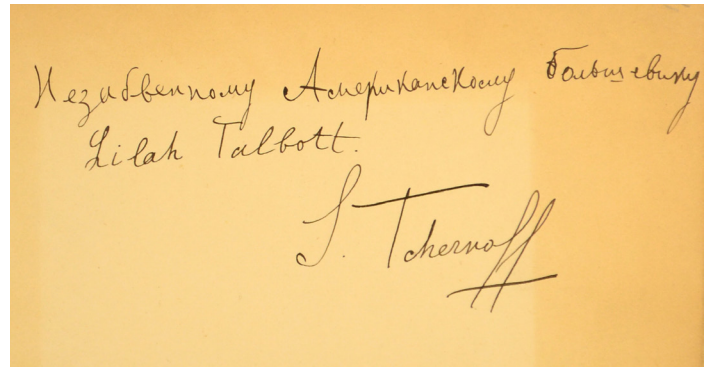 Незабвенному Американскому Большевику
Lilah Talbott.
S. Tchernoff